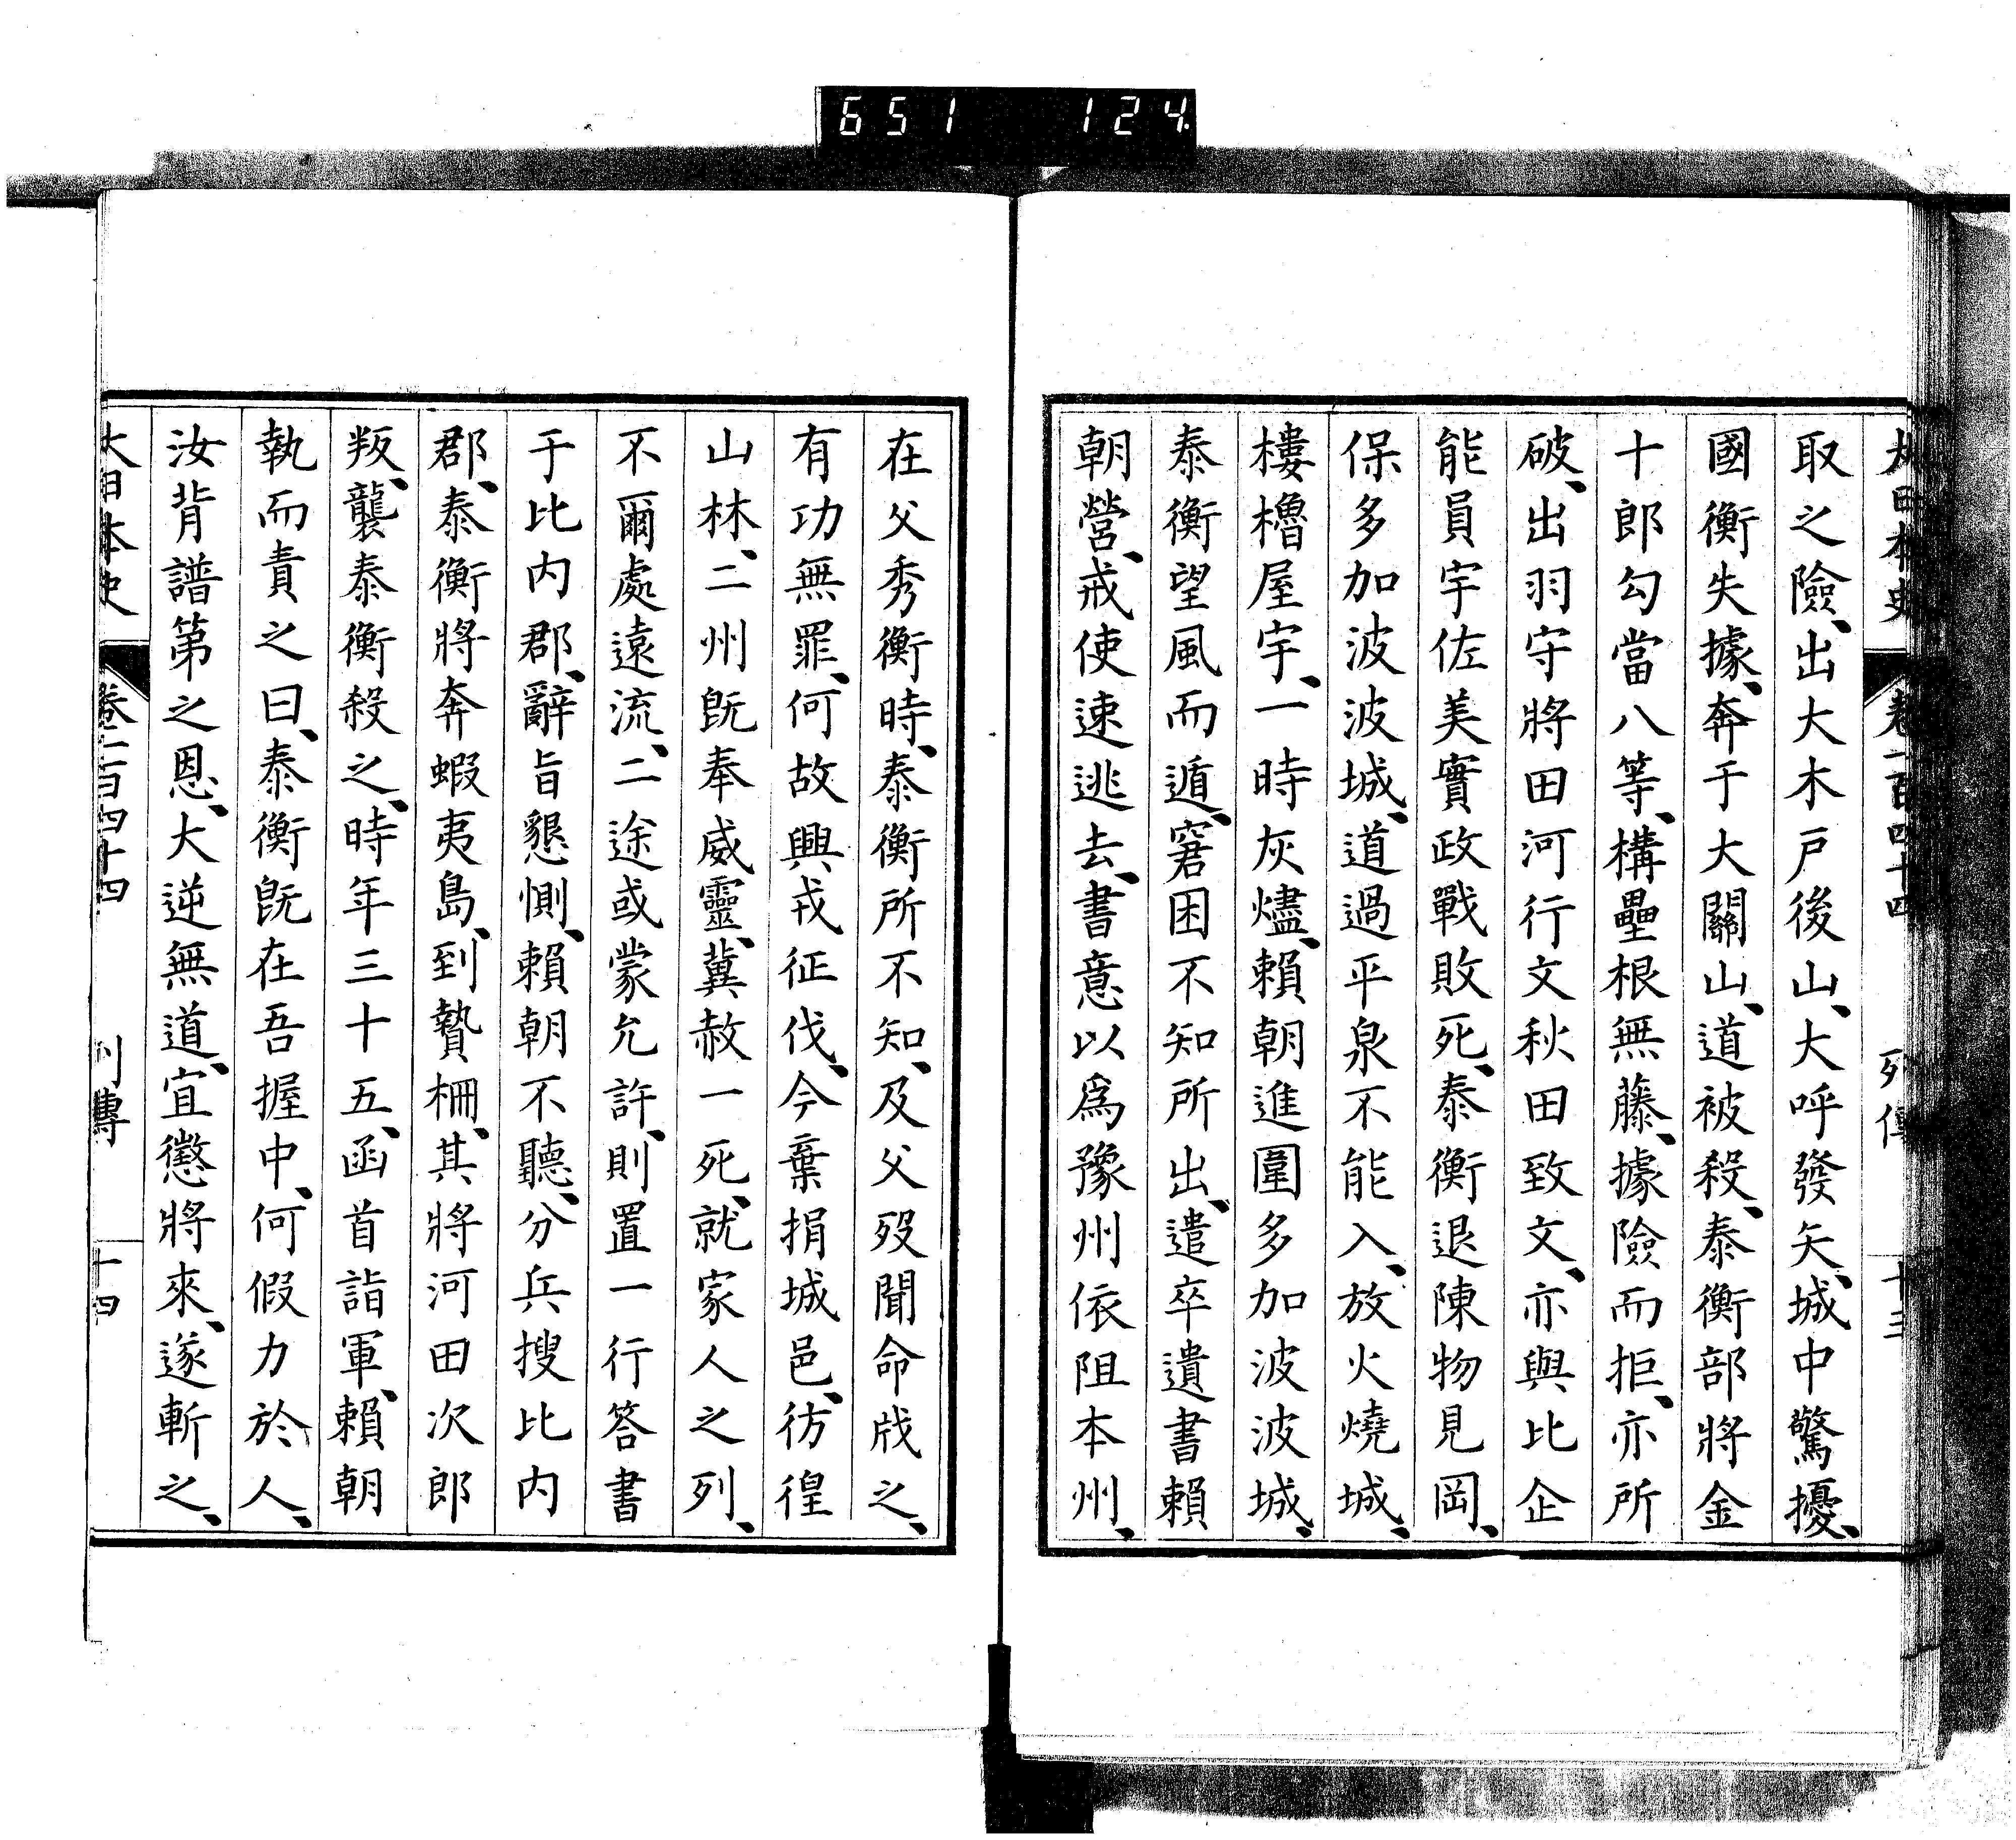 651 124
大日本史 卷二百四十四 列傳 十三
取之險、出大木戸後山、大呼發矢、城中驚擾、
國衡失據、奔于大關山、道被殺、泰衡部將金
十郎勾當八等、構壘根無藤、據險而拒、亦所
破、出羽守將田河行文秋田致文、亦與比企
能員宇佐美實政戰敗死、泰衡退陳物見岡、
保多加波波城、道過平泉不能入、放火燒城、
樓櫓屋宇、一時灰燼、賴朝進圍多加波波城、
泰衡望風而遁、窘困不知所出、遣卒遺書賴
朝營、戒使速逃去、書意以爲豫州依阻本州、
在父秀衡時、泰衡所不知、及父歿聞命戕之、
有功無罪、何故興戎征伐、今棄捐城邑、彷徨
山林、二州既奉威靈、冀赦一死、就家人之列、
不爾處遠流、二途或蒙允許、則置一行答書
于比内郡、辭旨懇惻、賴朝不聽、分兵搜比内
郡、泰衡將奔蝦夷島、到贄柵、其將河田次郎
叛、襲泰衡殺之、時年三十五、函首詣軍、賴朝
執而責之曰、泰衡既在吾握中、何假力於人、
汝背譜第之恩、大逆無道、宜懲將來、遂斬之、
大日本史 卷二百四十四 列傳 十四